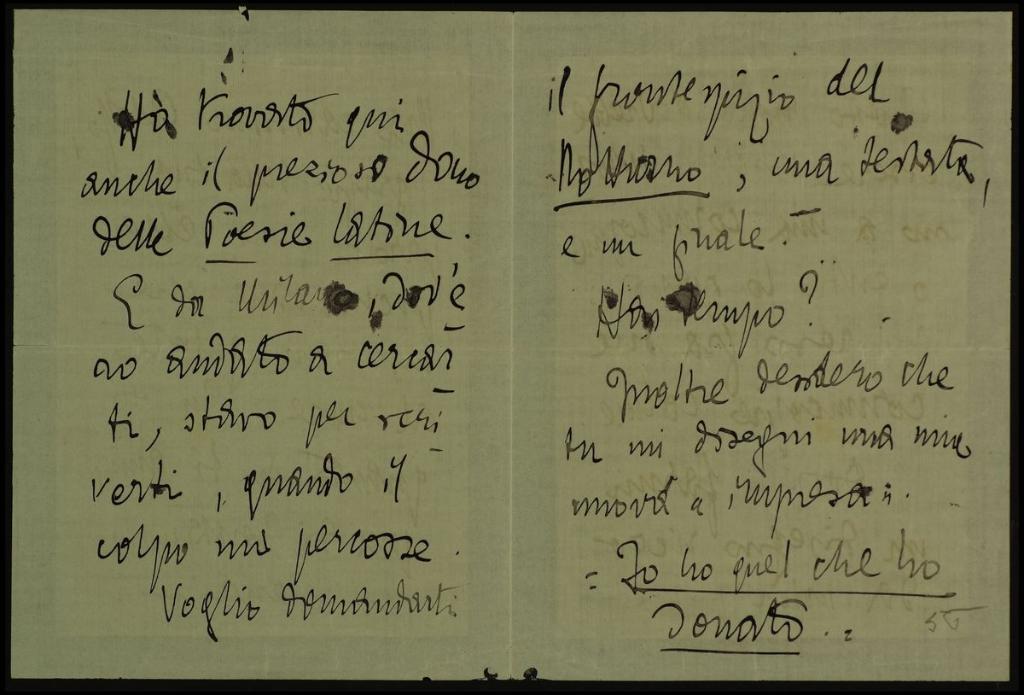 Hà trovato qui
anche il prezioso dono
delle Poesie latine.
E da Milano, dov'è
ro andato a cercar
ti, stavo per scri
verti, quando il
colpo mi percosse.
Voglio domandarti
il frontespizio del
Notturno; una testata,
e un finale.
Hai tempo?
Inoltre desidero che
tu mi disegni una mia
nuova "impresa":
= Io ho quel che ho
donato. =